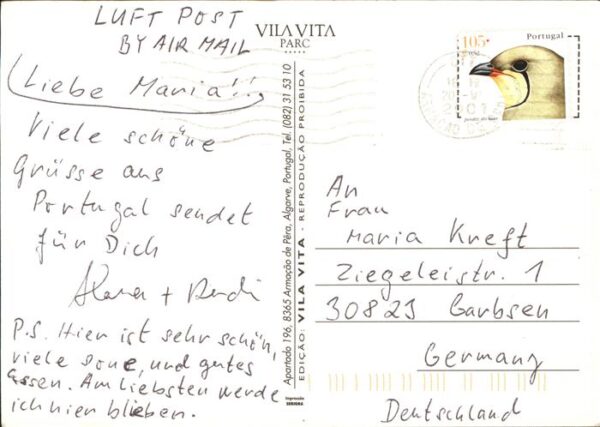 LUFT POST
BY AIR MAIL
Liebe Maria!!
Viele schöne
Grüsse aus
Portugal sendet
für Dich
P.S. Hier ist sehr schön,
viele sone, und gutes
Essen. Am liebsten werde
ich hier bleiben.
VILA VITA
PARC
Apartado 196, 8365 Armação de Pêra, Algarve, Portugal, Tel. (082) 31 53 10
EDIÇÃO: VILA VITA - REPRODUÇÃO PROIBIDA
Impressão
105
Portugal
An
Frau
Maria Kreft
Ziegeleistr. 1
30823 Garbsen
Germany
Deutschland